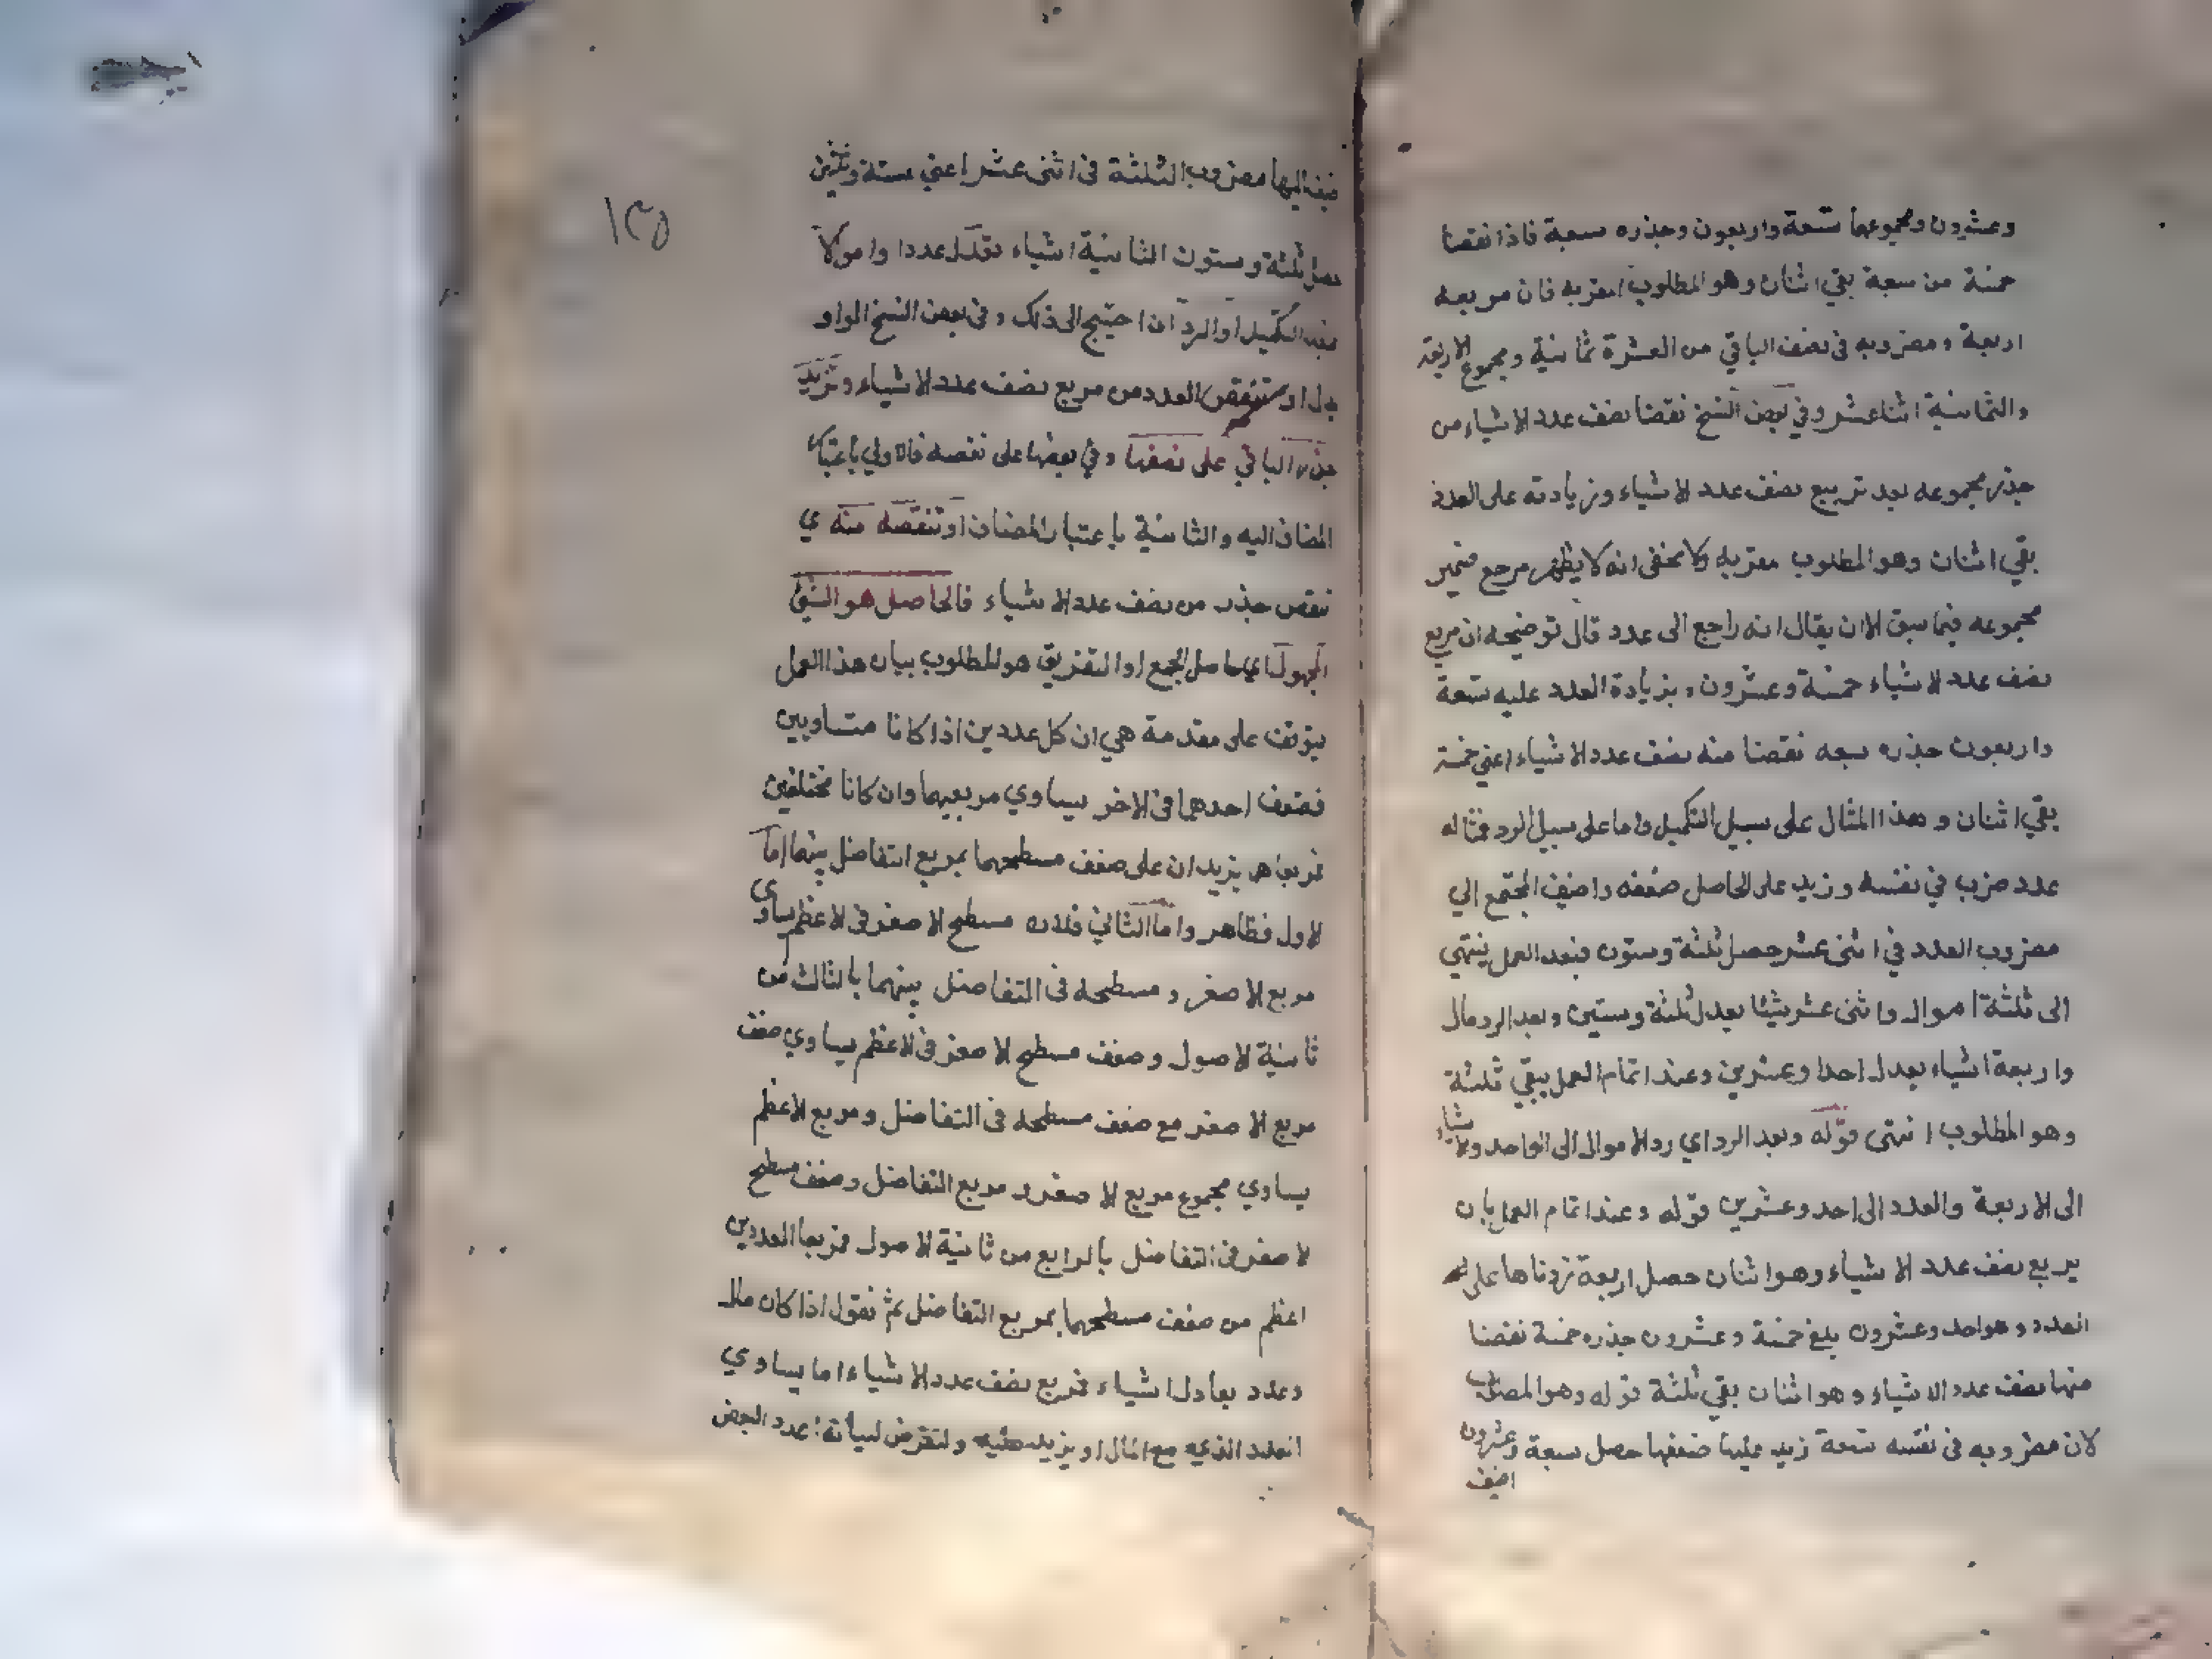 وعشرون ومجموعها تسعة واربعون وجذره سبعة فاذا نقصنا
خمسة من سبعة بقي اثنان وهو المطلوب المقر به فان مربعه
اربعة ومضروبه في نصف الباقي من العشرة ثمانية ومجموع الاربعة
والثمانية اثنا عشر وفي بعض النسخ نقصنا نصف عدد الاشياء من
جذر مجموعه بعد تربيع نصف عدد الاشياء وزيادته على العدد
بقي اثنان وهو المطلوب مقر به ولا يخفى انه لا يظهر مرجع ضمير
مجموعه فيما سبق الا ان يقال انه راجع الى عدد قال توضيحه ان مربع
نصف عدد الاشياء خمسة وعشرون وبزيادة العدد عليه تسعة
واربعون جذره سبعه نقصنا منه نصف عدد الاشياء اعني خمسة
بقي اثنان وهذا المثال على سبيل التكميل واما على سبيل الرد فمثاله
عدد ضرب في نفسه وزيد على الحاصل ضعفه واضيف المجتمع الي
مضروب العدد في اثنى عشر حصل ثلثة وستون فبعد العمل ينتهي
الى ثلثة اموال واثنى عشر شيئا يعدل ثلثة وستين وبعد الرد مال
واربعة اشياء يعدل احدا وعشرين وعند اتمام العمل يبقي ثلثة
وهو المطلوب انتهى قوله وبعد الرد اي رد الاموال الى الواحد والاشياء
الى الاربعة والعدد الى احد وعشرين قوله وعند اتمام العمل بان
يربع نصف عدد الاشياء وهو اثنان حصل اربعة زدناها على
العدد وهو احد وعشرون بلغ خمسة وعشرون جذره خمسة نقصنا
منها نصف عدد الاشياء وهو اثنان بقي ثلثة قوله وهو المطلوب
لان مضروبه في نفسه تسعة زيد عليها ضعفها حصل سبعة وعشرون
اضيف
١٣٥
اليها مضروب الثلثة في اثنى عشر اعني ستة وثلثين
حصل ثلثة وستون الثانية اشياء تعدل عددا واموالا
فبعد التكميل او الرد ان احتيج الى ذلك وفي بعض النسخ الواو
بدل او تنقص العدد من مربع نصف عدد الاشياء وتزيد
جذر الباقي على نصفها وفي بعضها على نصفه فالاولي باعتبار
المضاف اليه والثانية باعتبار المضاف او تنقصه منه اي
تنقص جذره من نصف عدد الاشياء فالحاصل هو الشئ
المجهول اي حاصل الجمع او التفريق هو المطلوب بيان هذا العمل
يتوقف على مقدمة هي ان كل عددين اذا كانا متساويين
فضعف احدهما في الاخر يساوي مربعيهما وان كانا مختلفين
فمربعاهما يزيدان على ضعف مسطحهما بمربع التفاضل بينهما اما
الاول فظاهر واما الثاني فلان مسطح الاصغر في الاعظم يساوي
مربع الاصغر ومسطحه في التفاضل بينهما بالثالث من
ثانية الاصول وضعف مسطح الاصغر في الاعظم يساوي ضعف
مربع الاصغر مع ضعف مسطحه في التفاضل ومربع الاعظم
يساوي مجموع مربع الاصغر ومربع التفاضل وضعف مسطح
الاصغر في التفاضل بالرابع من ثانية الاصول فمربعا العددين
اعظم من ضعف مسطحهما بمربع التفاضل ثم نقول اذا كان مال
وعدد يعادل اشياء فمربع نصف عدد الاشياء اما يساوي
العدد الذي مع المال او يزيد عليه ولنفرض لبيانه عدد البعض